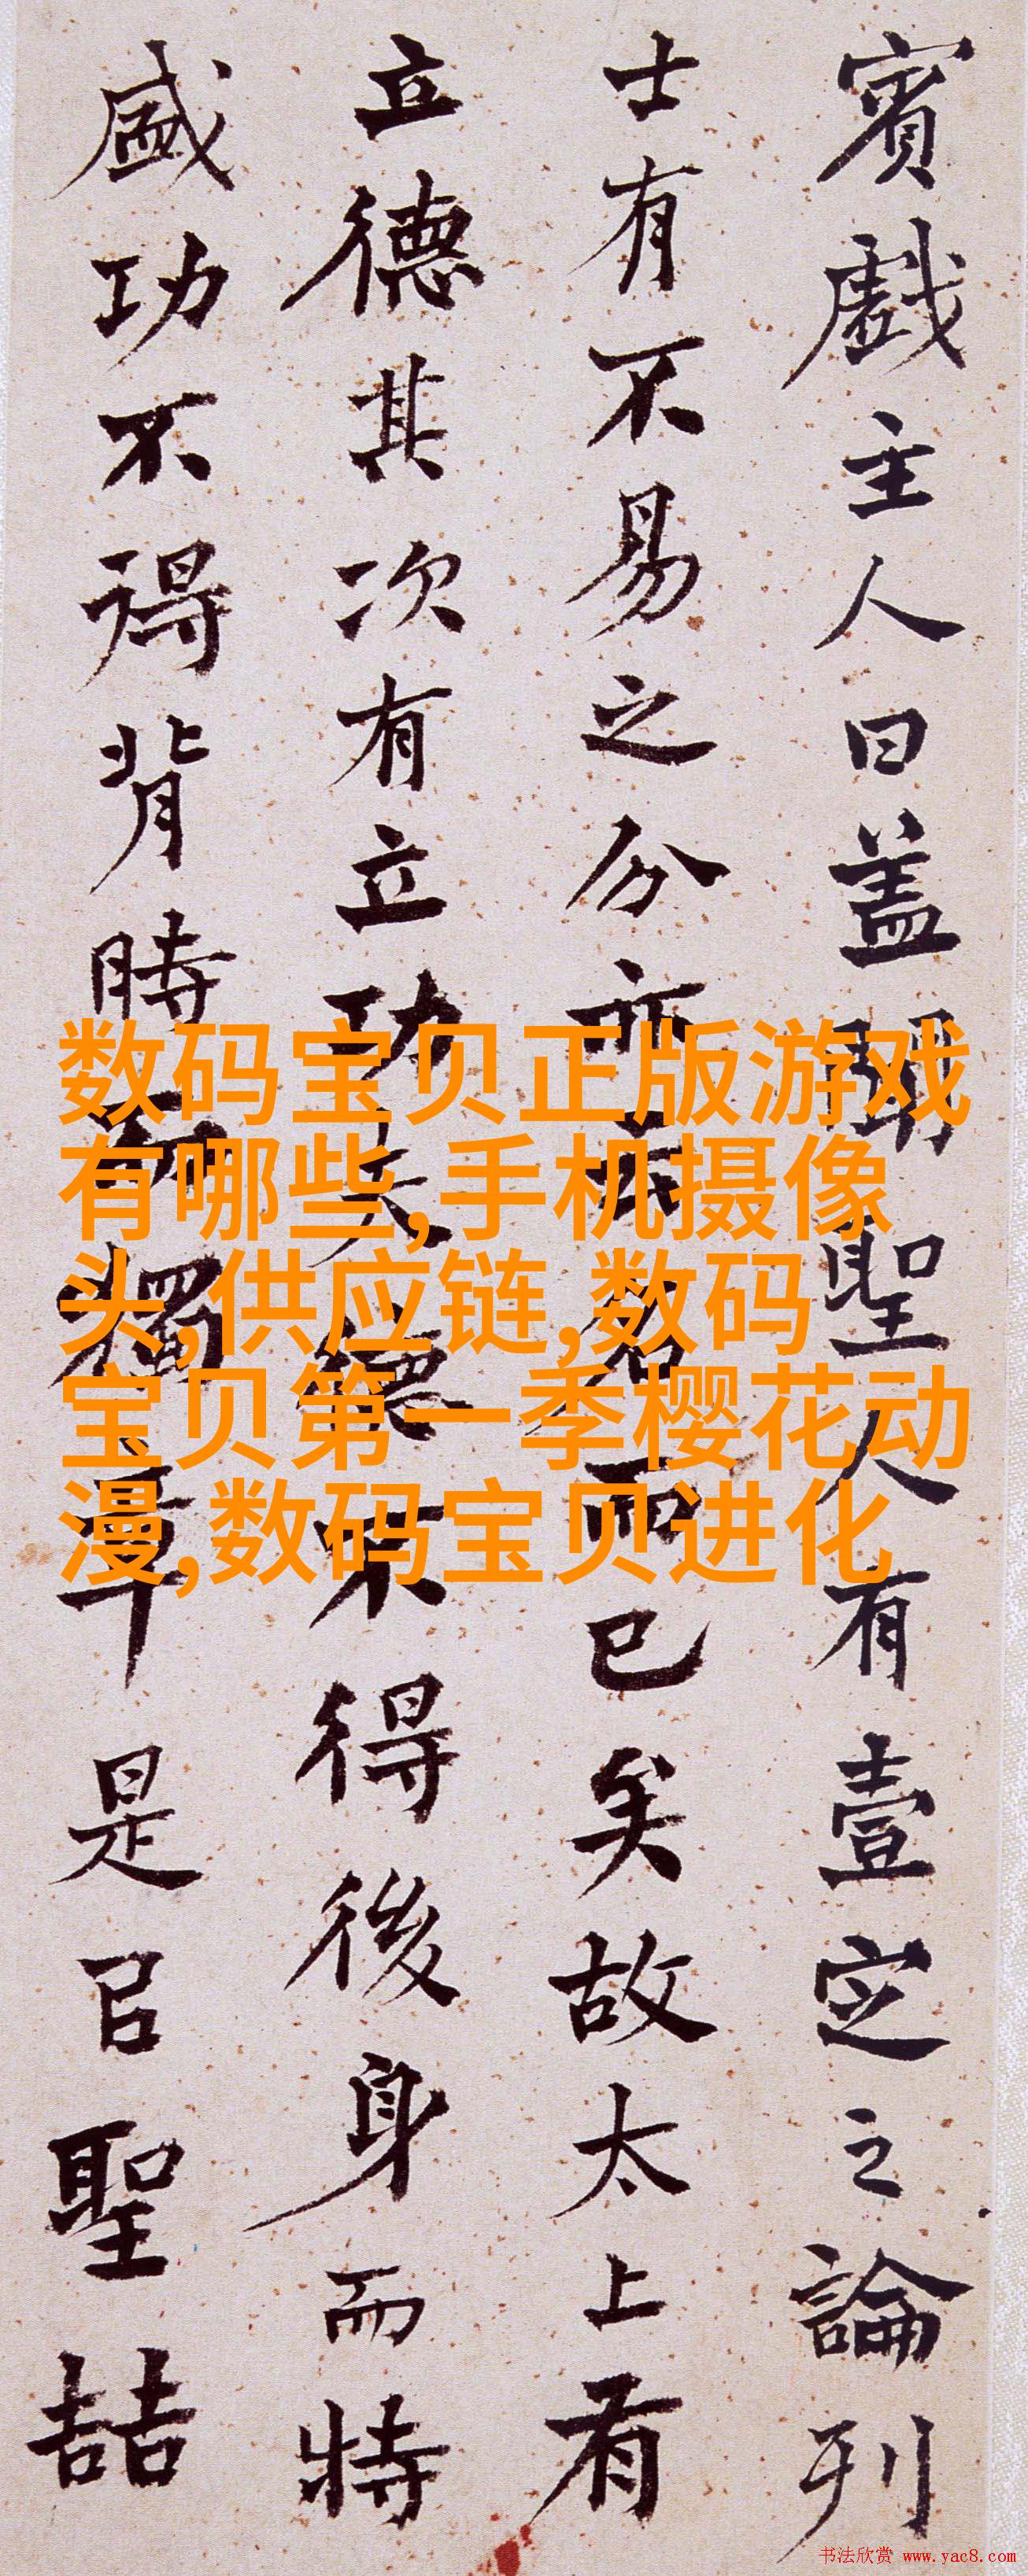 賓戲主人曰蓋聞聖人有壹定之論列
士有不易之分亦云名而已矣故太上有
立德其次有立功夫德不得後身而特
盛功不得背時而獨章是㠯聖喆
数码宝贝正版游戏
有哪些,手机摄像
头,供应链,数码
宝贝第一季樱花动
漫,数码宝贝进化
书法欣赏 www.yac8.com